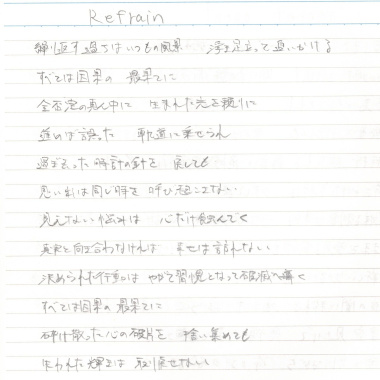 Refrain
繰り返す過ちはいつもの風景 浮き足立って追いかける
すべては因果の 最果てに
全否定の真ん中に 生まれた光を頼りに
迷いは誤った 軌道に乗せられ
過ぎ去った時計の針を 戻しても
思い出は同じ時を 呼び起こさない
見えない悩みは 心だけ蝕んでく
真実と向き合わなければ 幸せは訪れない
決められた行動は やがて習慣となって破滅へ導く
すべては因果の 最果てに
砕け散った心の破片を 拾い集めても
失われた輝きは 取り戻せない